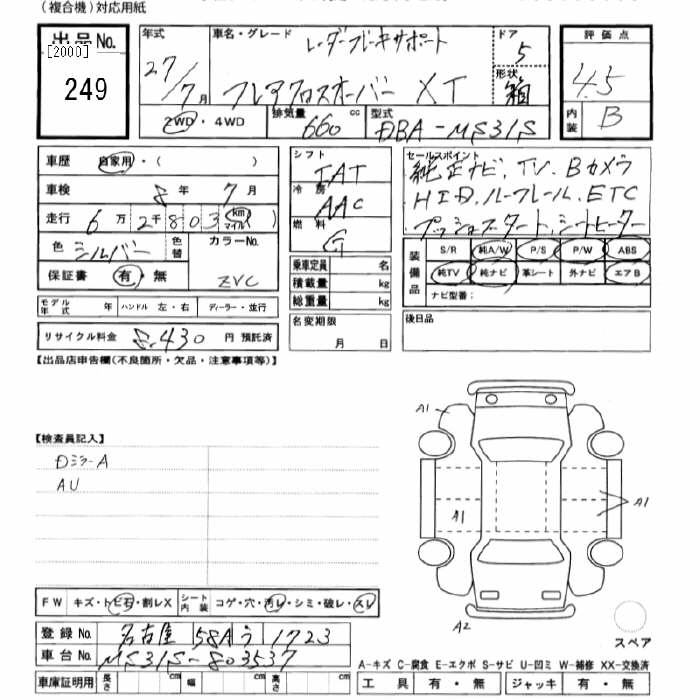 (複合機)対応用紙
出品No. [2000] 249
年式 27/7月
車名・グレード レーダーブレーキサポート
フレアクロスオーバー XT
ドア 5
形状 箱
評価点 4.5
内装 B
2WD・4WD 排気量 660cc 型式 DBA-MS31S
車歴 自家用・( )
車検 8年 7月
走行 6万2千803 (km マイル)
色 シルバー 色替 カラーNo. ZVC
保証書 有・無
モデル年式 年 ハンドル 左・右 ディーラー・並行
リサイクル料金 8,430 円 預託済
シフト IAT
冷房 AAC
燃料 G
乗車定員 名
積載量 kg
総重量 kg
名変期限 月 日
セールスポイント
純正ナビ、TV、Bカメラ
HID、ルーフレール、ETC
プッシュスタート、シートヒーター
装備品 S/R 純A/W P/S P/W ABS
純TV 純ナビ 革シート 外ナビ エアB
ナビ型番:
後日品
【出品店申告欄(不良箇所・欠品・注意事項等)】
【検査員記入】
DミラーA
AU
A1
A1
A1
A2
スペア
FW キズ・トビ石・割レX シート内装 コゲ・穴・汚レ・シミ・破レ・スレ
登録No. 名古屋 58A う 1723
車台No. MS31S-803537
車庫証明用 長さ cm 幅 cm 高さ cm
A-キズ C-腐食 E-エクボ S-サビ U-凹ミ W-補修 XX-交換済
工具 有・無 ジャッキ 有・無